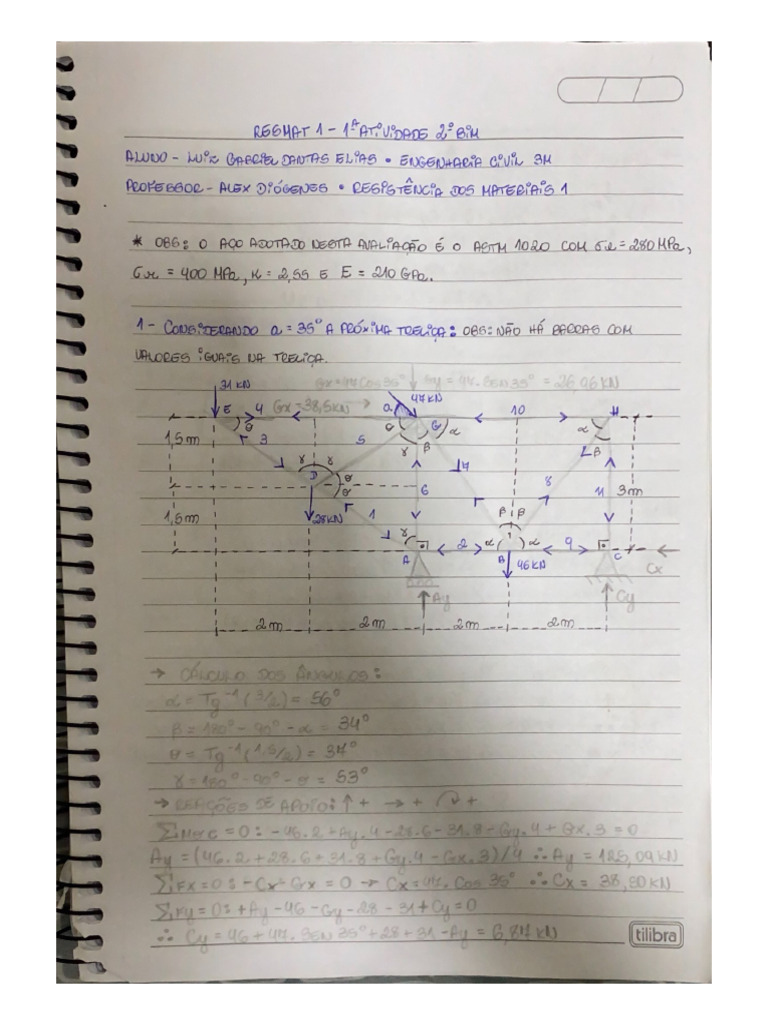 RESMAT 1 - 1ª ATIVIDADE 2º BIM
ALUNO - LUIZ GABRIEL DANTAS ELIAS • ENGENHARIA CIVIL 3M
PROFESSOR - ALEX DIÓGENES • RESISTÊNCIA DOS MATERIAIS 1
* OBS: O AÇO ADOTADO NESTA AVALIAÇÃO É O ASTM 1020 COM σe = 280 MPa,
σr = 400 MPa, K = 2,55 E E = 210 GPa.
1 - CONSIDERANDO a = 35° A PRÓXIMA TRELIÇA: OBS: NÃO HÁ BARRAS COM
VALORES iGUAIS NA TRELIÇA.
Gx = 47 Cos 35° Gy = 47. Sen 35° = 26,96 KN
31 KN 47 KN
Gx = 38,5 KN a
E 4 G 10 H
θ θ α α
1,5 m 3 5 γ β β
γ γ
D θ 6 7 8 11 3 m
θ
1,5 m 28 KN 1 β β
γ α α
A 2 B 9 C
46 KN Cx
Ay Cy
2 m 2 m 2 m 2 m
→ CÁLCULO DOS ÂNGULOS:
α = Tg⁻¹ (3/2) = 56°
β = 180° - 90° - α = 34°
θ = Tg⁻¹ (1,5/2) = 37°
γ = 180° - 90° - θ = 53°
→ REAÇÕES DE APOIO: ↑ + → + ↷ +
ΣM C = 0: - 46.2 + Ay.4 - 28.6 - 31.8 - Gy.4 + Gx.3 = 0
Ay = (46.2 + 28.6 + 31.8 + Gy.4 - Gx.3) / 4 ∴ Ay = 125,09 KN
ΣFx = 0: - Cx - Gx = 0 → Cx = 47. Cos 35° ∴ Cx = 38,50 KN
ΣFy = 0: + Ay - 46 - Gy - 28 - 31 + Cy = 0
∴ Cy = 46 + 47. SEN 35° + 28 + 31 - Ay = 6,87 KN
tilibra